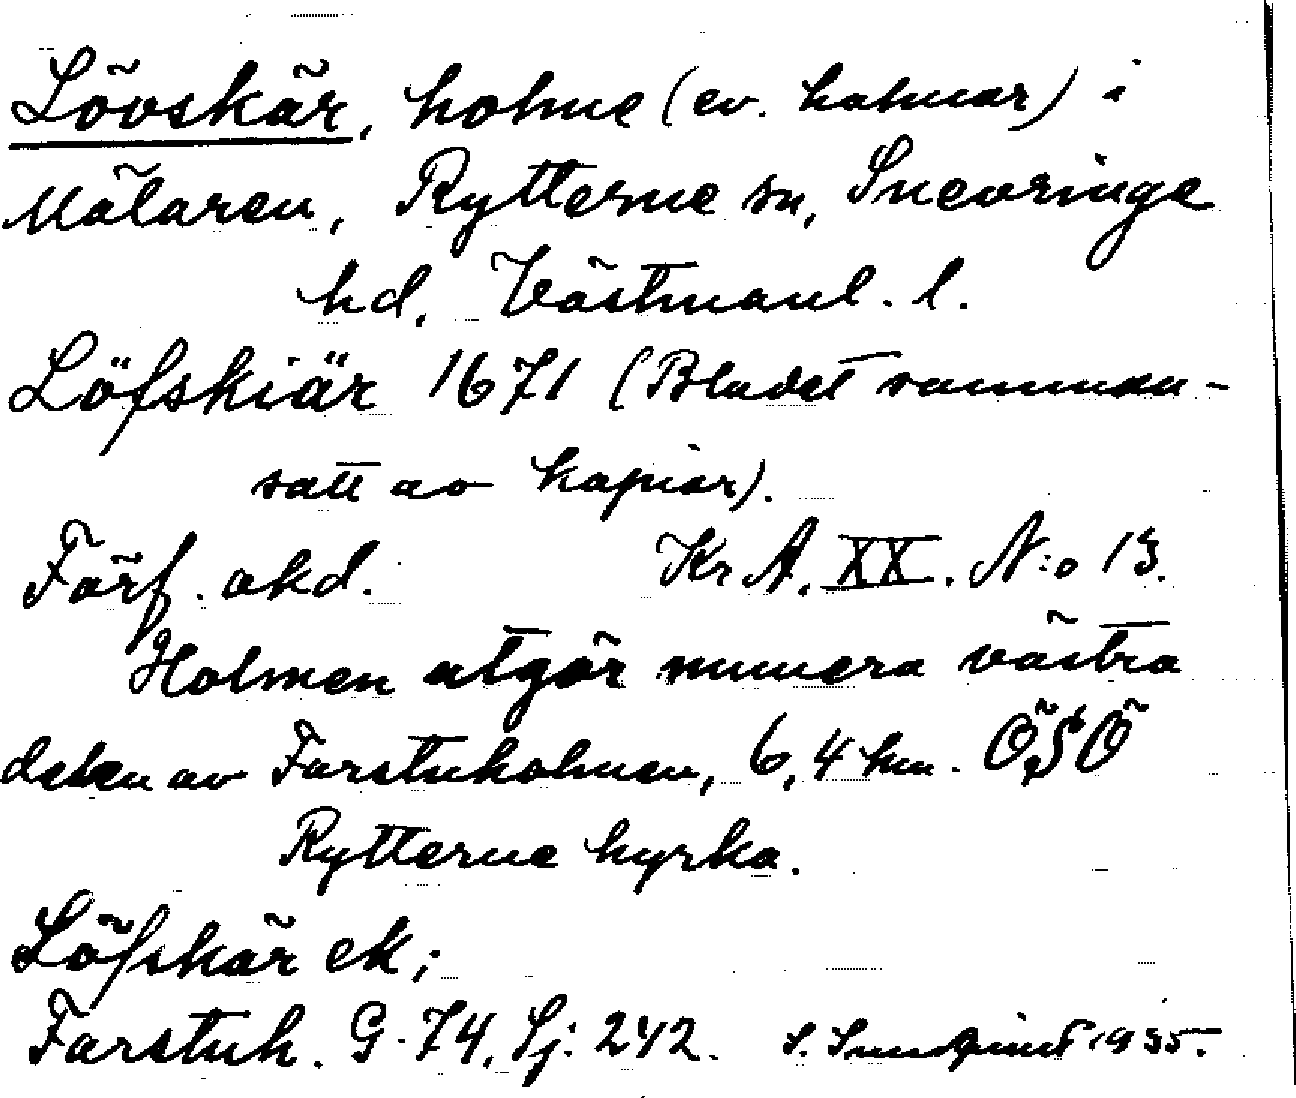 Lövskär, holme (ev. holmar) i
Mälaren, Rytterne sn, Snevringe
hd, Västmanl. l.
Löfskiär 1671 (Bladet samman-
satt av kopior).
Förf. okd. Kr A. XX. N:o 13.
Holmen utgör numera västra
delen av Farstuholmen, 6,4 km. ÖSÖ
Rytterne kyrka.
Löfskär ek;
Farstuh. G. 74. Sj: 242. S. Sundquist 1935.